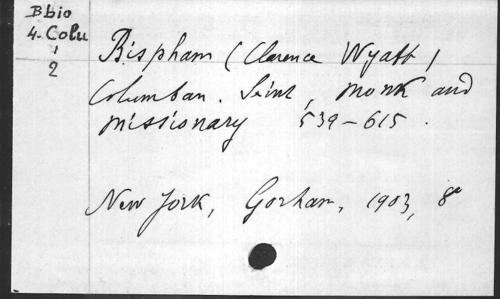 B bio
4-Colu
1
2
Bispham (Clarence Wyatt)
Columban. Saint, monk and
missionary 539-615.
New York, Gorham, 1903, 8º